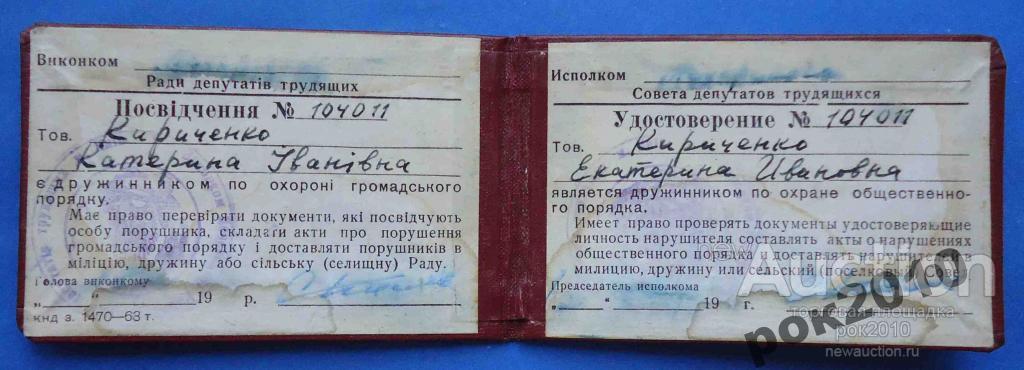 Виконком
Ради депутатів трудящих
Посвідчення № 104011
Тов. Кириченко
Катерина Іванівна
є дружинником по охороні громадського
порядку.
Має право перевіряти документи, які посвідчують
особу порушника, складати акти про порушення
громадського порядку і доставляти порушників в
міліцію, дружину або сільську (селищну) Раду.
Голова виконкому
„ “ 19 р.
КНД з. 1470—63 т.
Исполком
Совета депутатов трудящихся
Удостоверение № 104011
Тов. Кириченко
Екатерина Ивановна
является дружинником по охране общественно-
го порядка.
Имеет право проверять документы удостоверяющие
личность нарушителя составлять акты о нарушениях
общественного порядка и доставлять нарушителей в
милицию, дружину или сельский поселковый Совет
Председатель исполкома
„ “ 19 г.
new
Auction
торговая площадка
рок2010
newauction.ru
рок2010